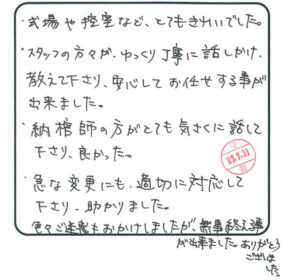 ・式場や控室など、とてもきれいでした。
・スタッフの方々が、ゆっくり丁寧に話しかけ、
教えて下さり、安心してお任せする事が
出来ました。
・納棺師の方がとても気さくに話して
下さり、良かった。
・急な変更にも、適切に対応して
下さり、助かりました。
色々ご迷惑もおかけしましたが、無事終える事
が出来ました。ありがとう
ございま
した。